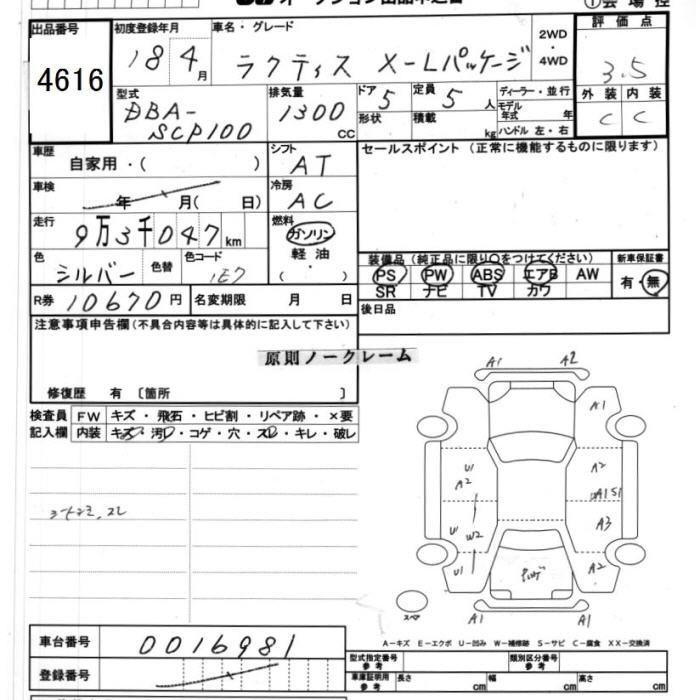 オークション出品申込書
①会場控
出品番号 4616
初度登録年月 18 4月
車名・グレード ラクティス X-Lパッケージ
2WD・4WD
評価点 3.5
外装 内装
C C
型式 DBA-SCP100
排気量 1300 CC
ドア 5 定員 5人
形状 積載 kg
ディーラー・並行
モデル年式 年
ハンドル 左・右
車歴 自家用・( )
シフト AT
セールスポイント (正常に機能するものに限ります)
車検 年 月( 日)
冷房 AC
走行 9万3千047km
燃料 ガソリン
軽油
・
( )
色 シルバー 色替 色コード 1E7
装備品 (純正品に限り○をつけてください)
新車保証書
PS PW ABS エアB AW
SR ナビ TV カワ
有・無
R券 10670円 名変期限 月 日
後日品
注意事項申告欄(不具合内容等は具体的に記入して下さい)
原則ノークレーム
修復歴 有 〔箇所 〕
検査員記入欄
FW キズ・飛石・ヒビ割・リペア跡・×要
内装 キズ・汚レ・コゲ・穴・スレ・キレ・破レ
A1 A2
A1
U1 A2
A2
A1 S1
U1 W2 A3
U1 A2
スペア
A1 A1
A-キズ E-エクボ U-凹み W-補修跡 S-サビ C-腐食 XX-交換済
車台番号 0016981
登録番号
型式指定番号 参考
類別区分番号 参考
車庫証明用 参考 長さ cm 幅 cm 高さ cm